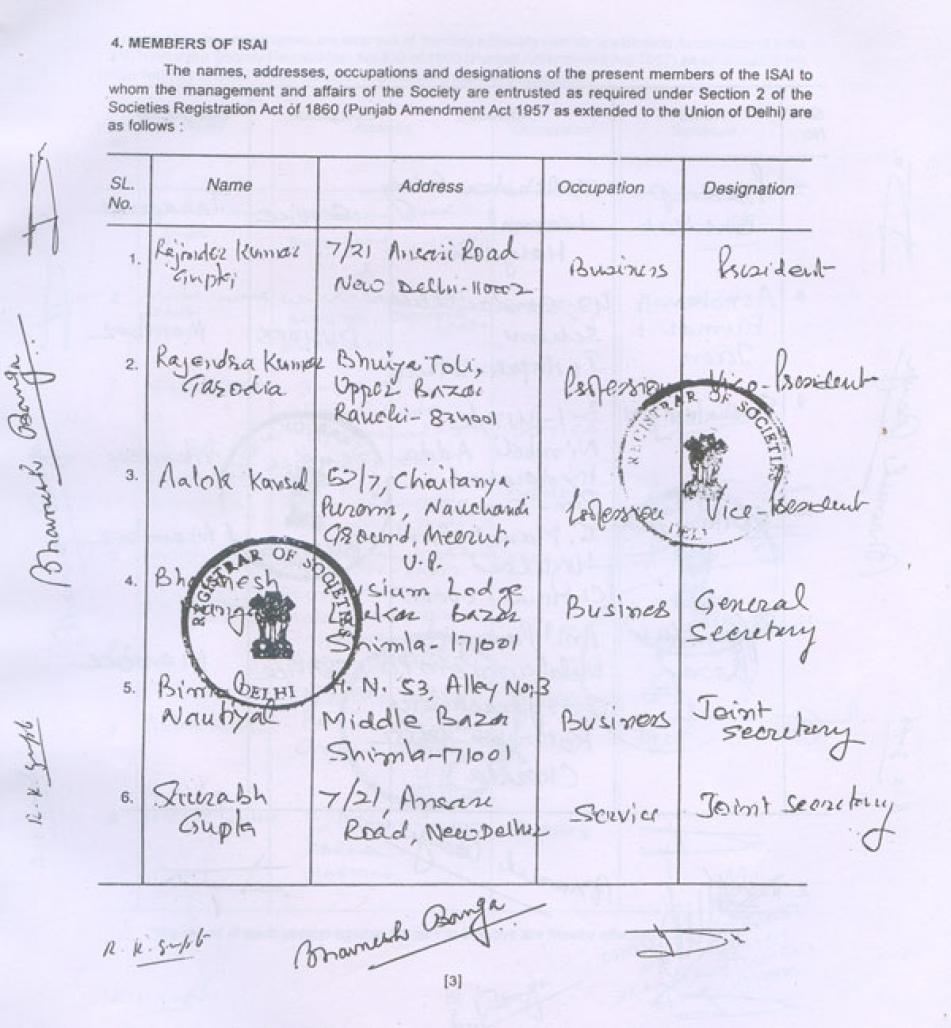 4. MEMBERS OF ISAI
The names, addresses, occupations and designations of the present members of the ISAI to
whom the management and affairs of the Society are entrusted as required under Section 2 of the
Societies Registration Act of 1860 (Punjab Amendment Act 1957 as extended to the Union of Delhi) are
as follows :
SL. No. Name Address Occupation Designation
1. Rajinder Kumar 7/21 Ansari Road Business President
Gupta New Delhi-110002
2. Rajendra Kumar Bhuiya Toli, Profession Vice-President
Gasodia Upper Bazar
Ranchi- 834001
3. Aalok Kansal 50/7, Chaitanya
Puram, Nauchandi Profession Vice-President
Ground, Meerut,
U.P.
4. Lodge Business General
Bazar Secretary
Shimla-171001
5. H. N. 53, Alley No;3
Nautiyal Middle Bazar Business Joint
Shimla-171001 secretary
6. Saurabh 7/21, Ansari Service Joint secretary
Gupta Road, New Delhi
REGISTRAR OF SOCIETIES
DELHI
REGISTRAR OF SOCIETIES
DELHI
Bhawnesh Banga
R. K. Gupta
R. K. Gupta
Bhawnesh Banga
[3]